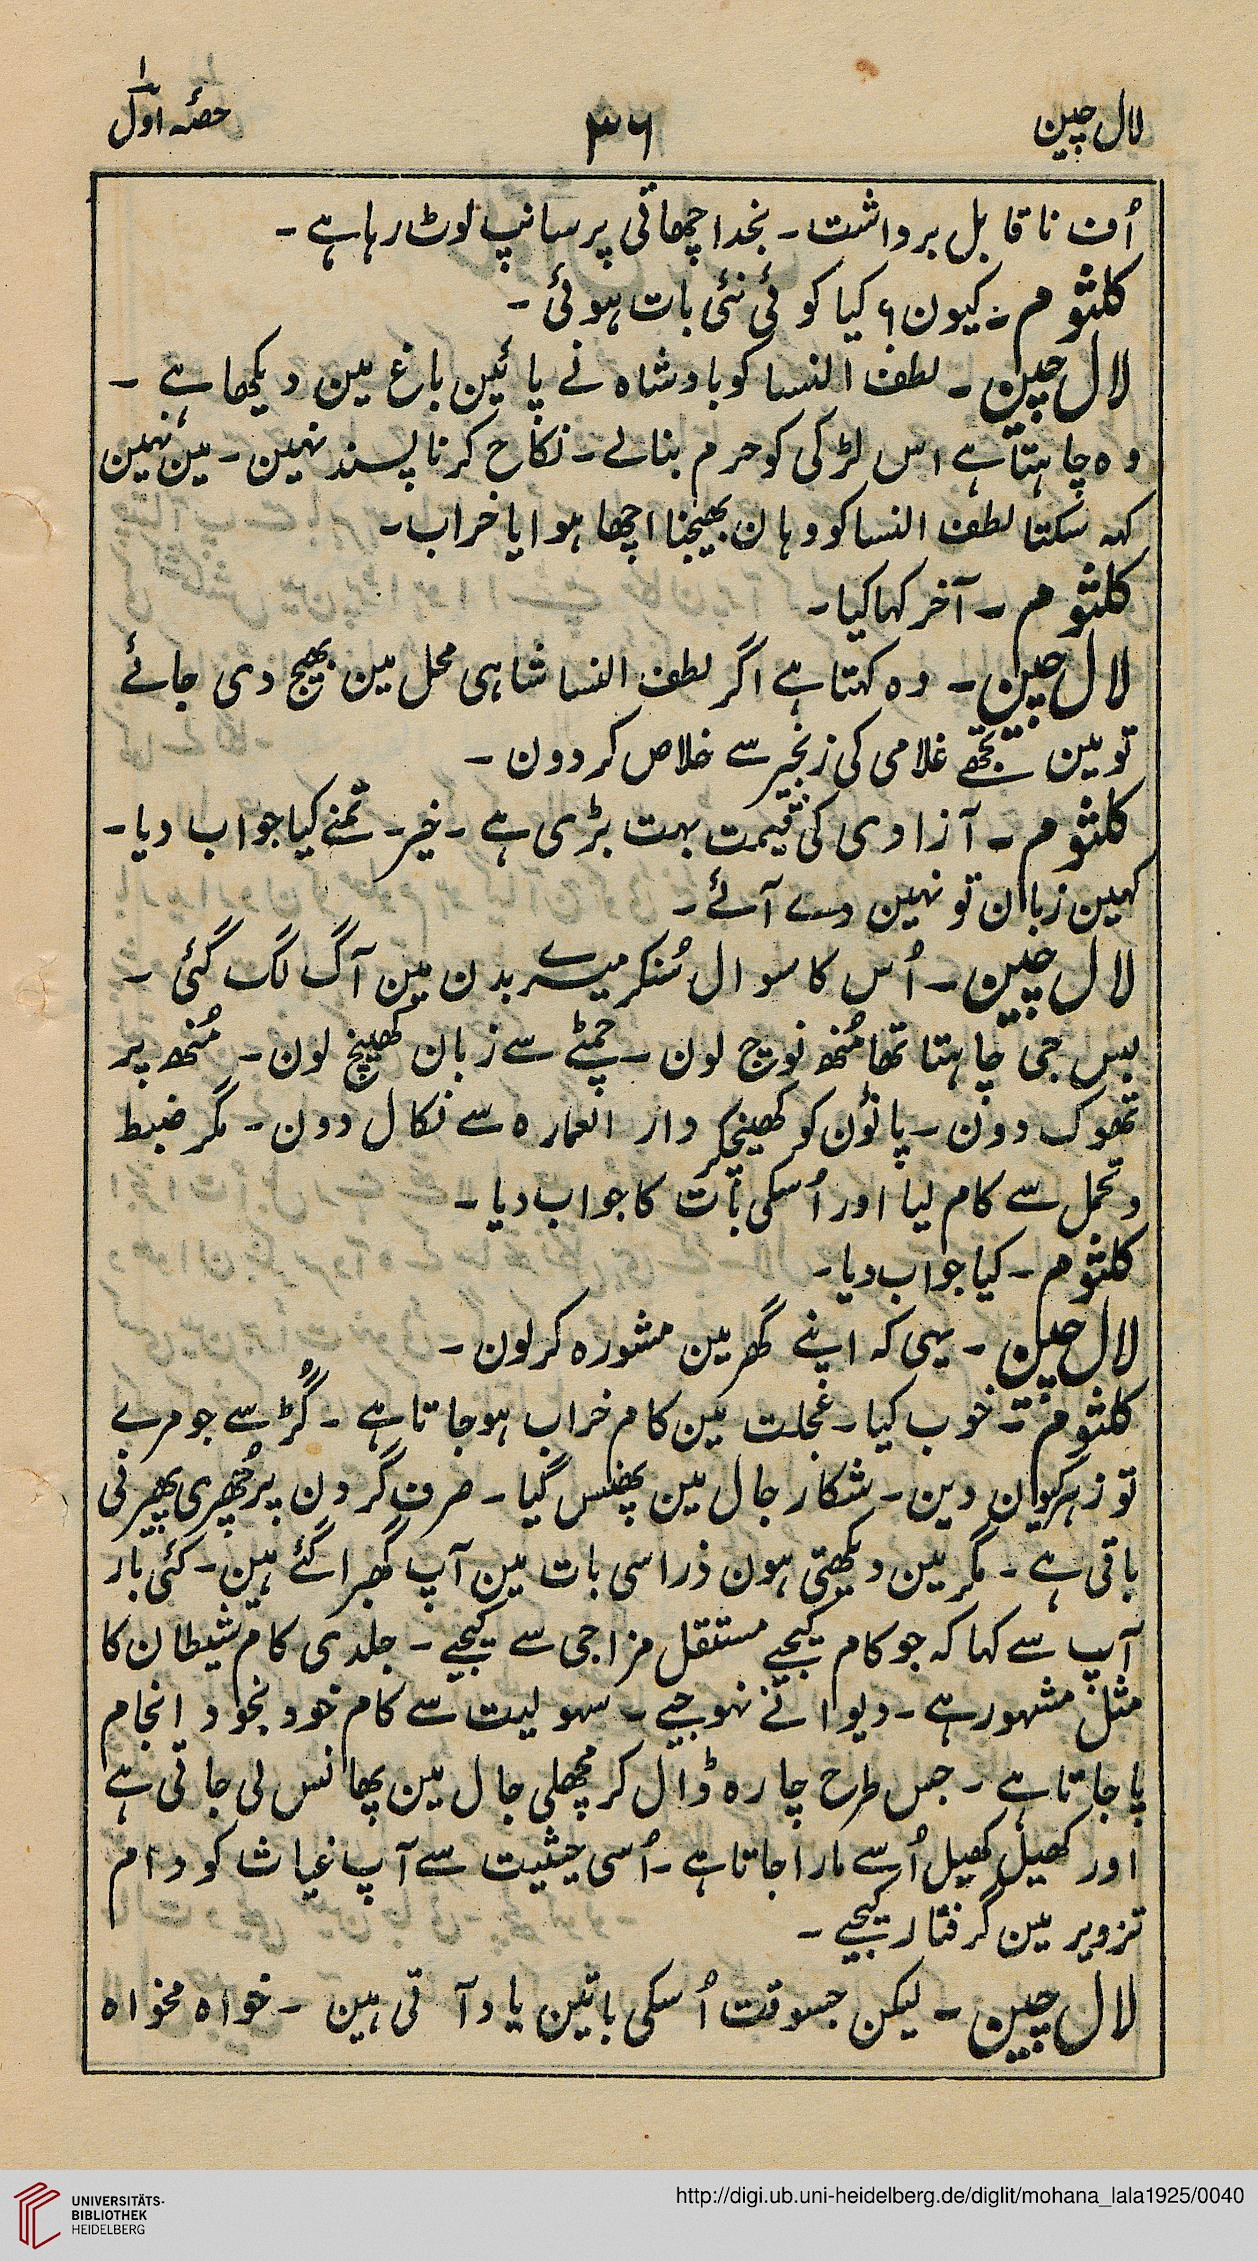 لال چین
۳۶
حصۂ اوّل
اُف ناقابل برداشت۔ بخدا چھاتی پر سانپ لوٹ رہا ہے۔
کلثوم۔ کیون؟ کیا کوئی نئی بات ہوئی۔
لال چین۔ لطف النسا کو بادشاہ نے پائین باغ مین دیکھا ہے۔
وہ چاہتا ہے اس لڑکی کو حرم بنالے۔ نکاح کرنا پسند نہین۔ مین نہین
کہہ سکتا لطف النسا کو وہان بھیجنا اچھا ہوا یا خراب۔
کلثوم۔ آخر کہا کیا۔
لال چین۔ وہ کہتا ہے اگر لطف النسا شاہی محل مین بھیج دی جائے
تو مین تجھے غلامی کی زنجیر سے خلاص کر دون۔
کلثوم۔ آزادی کی قیمت بہت بڑی ہے۔ خیر۔ تمنے کیا جواب دیا۔
کہین زبان تو نہین دے آئے۔
لال چین۔ اُس کا سوال سُنکر میرے بدن مین آگ لگ گئی۔
بس جی چاہتا تھا مُنھ نوچ لون۔ چمٹے سے زبان کھینچ لون۔ مُنھ پر
تھوک دون۔ پانؤن کو کھینچکر دار العمارہ سے نکال دون۔ مگر ضبط
و تحمل سے کام لیا اور اُسکی بات کا جواب دیا۔
کلثوم۔ کیا جواب دیا۔
لال چین۔ یہی کہ اپنے گھر مین مشورہ کر لون۔
کلثوم۔ خوب کیا۔ عجلت مین کام خراب ہو جاتا ہے۔ گُڑ سے جو مرے
تو زہر کیون دین۔ شکار جال مین پھنس گیا۔ صرف گردن پر چُھری پھیرنی
باقی ہے۔ مگر مین دیکھتی ہون ذرا سی بات مین آپ گھبرا گئے ہین۔ کئی بار
آپ سے کہا کہ جو کام کیجیے مستقل مزاجی سے کیجیے۔ جلدی کام شیطان کا
مثل مشہور ہے۔ دیوانے نہوجیے۔ سہولیت سے کام خود بخود انجام
پا جاتا ہے۔ جس طرح چارہ ڈال کر مچھلی جال مین پھانس لی جاتی ہے
اور کھیل کھیل اُسے مارا جاتا ہے۔ اُسی حیثیت سے آپ غیاث کو دام
تزویر مین گرفتار کیجیے۔
لال چین۔ لیکن جسوقت اُسکی باتین یاد آتی ہین۔ خواہ مخواہ
UNIVERSITÄTS-
BIBLIOTHEK
HEIDELBERG
http://digi.ub.uni-heidelberg.de/diglit/mohana_lala1925/0040